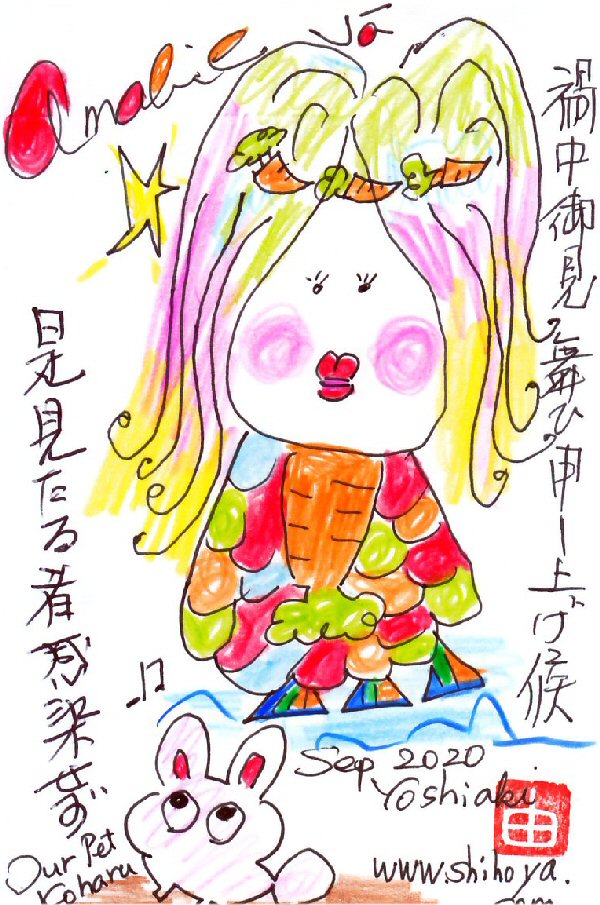 Amabie Jr
禍中御見舞ひ申し上げ候
是見たる者感染せず
Sep 2020
Yoshiaki
Our Pet
Koharu
www.shihoya.
com